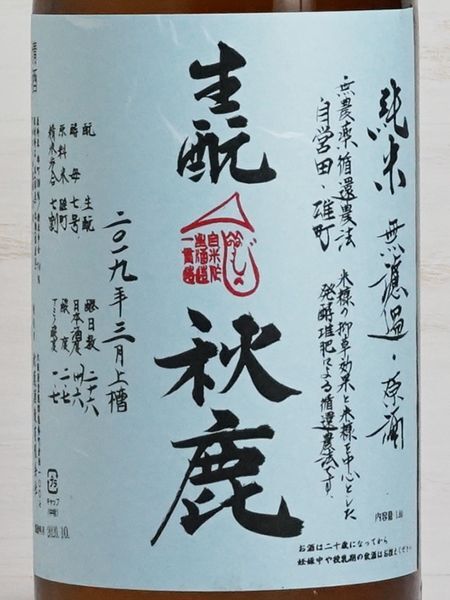 純米 無濾過・原酒
無農薬循還農法
自営田・雄町
米糠の抑草効果と米糠を中心とした
発酵堆肥による循還農法です。
生酛
秋鹿
自米作
生酒造
一貫造
二〇一九年三月上槽
酛 生酛
酵母 七号
原料米 雄町
精米歩合 七割
醪日数 二十六
日本酒度
酸度 二・七
アミノ酸度 一・七
清酒
内容量 1.8ℓ
お酒は二十歳になってから
妊娠中や授乳期の飲酒はお控えください
キャップ
2020.10.